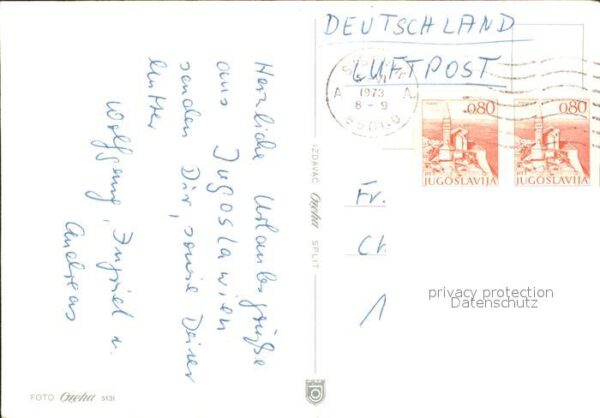 DEUTSCHLAND
LUFTPOST
1973
8 - 9
A A
0.80
JUGOSLAVIJA
0.80
JUGOSLAVIJA
Herzliche Urlaubsgrüße
aus Jugoslawien
senden Dir, sowie Deiner
Mutter
Wolfgang, Ingrid u.
Andreas
Fr.
Ch.
1
privacy protection
Datenschutz
IZDAVAČ SPLIT
FOTO 5131